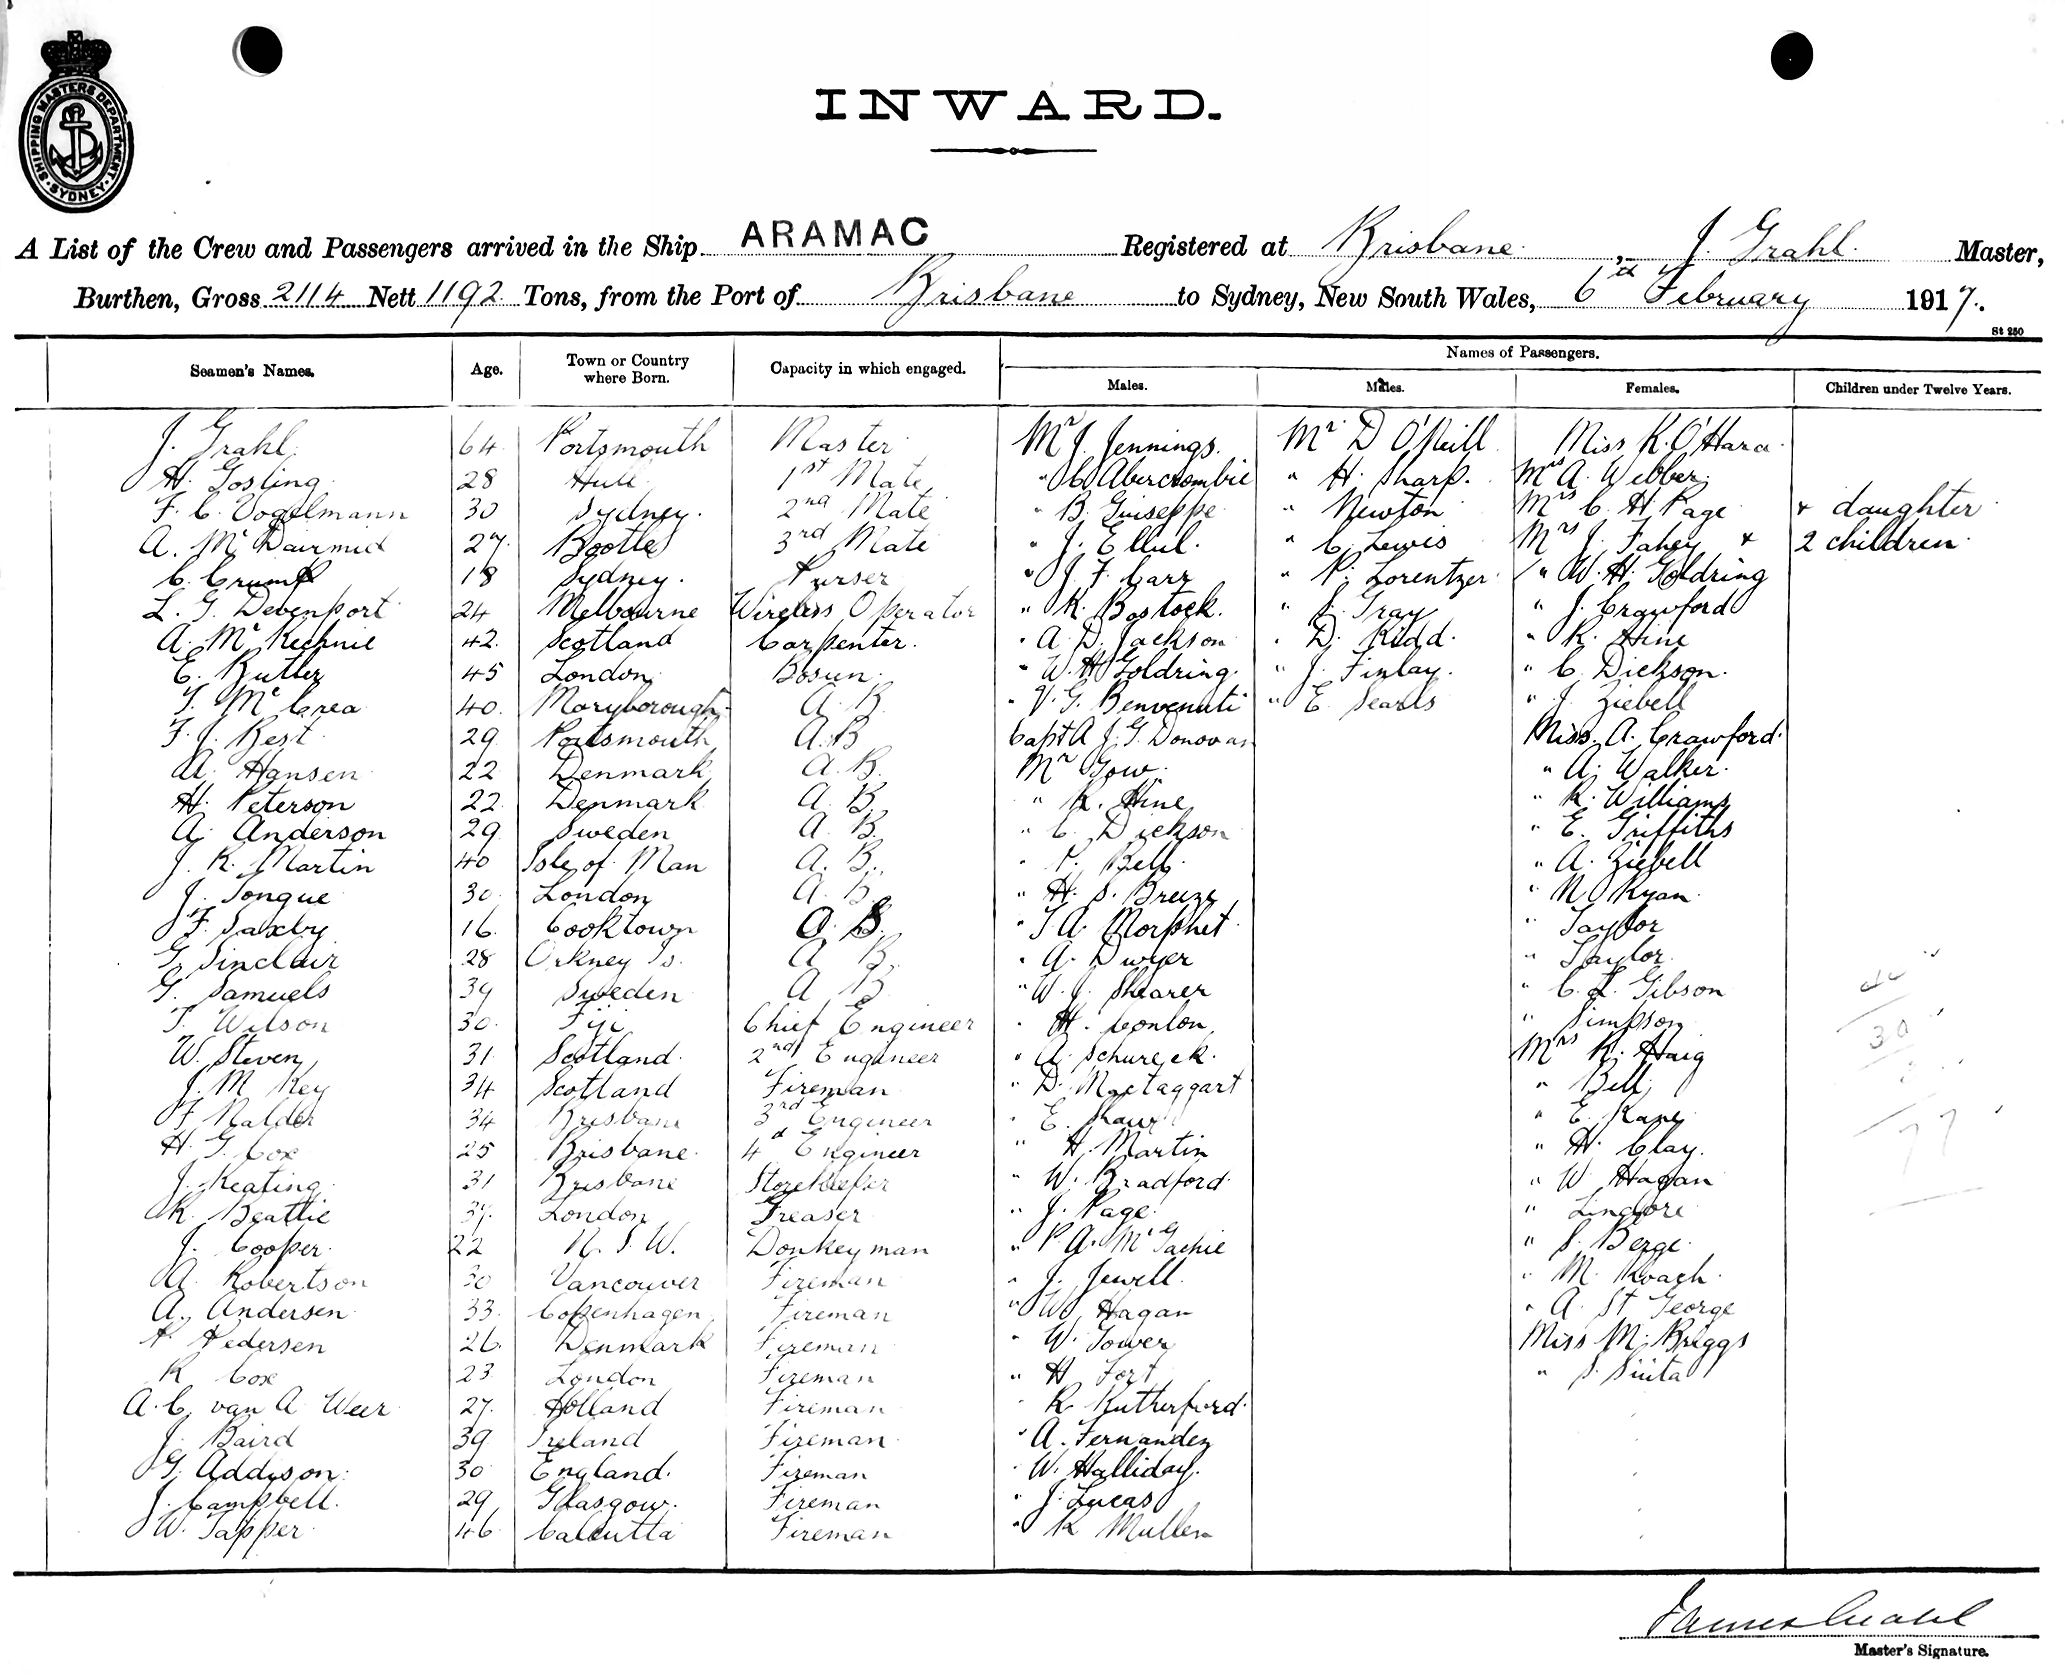 SHIPPING MASTERS DEPARTMENT
SYDNEY
INWARD.
A List of the Crew and Passengers arrived in the Ship ARAMAC Registered at Brisbane, J. Grahl. Master,
Burthen, Gross 2114 Nett 1192 Tons, from the Port of Brisbane to Sydney, New South Wales, 6th February 1917.
St 250
Seamen's Names. Age. Town or Country where Born. Capacity in which engaged. Names of Passengers.
Males. Males. Females. Children under Twelve Years.
J. Grahl. 64. Portsmouth Master Mr J. Jennings. Mr D O'Neill Miss K. O'Hara
H. Gosling 28 Hull 1st Mate " C Abercrombie " H. Sharp. Mrs A. Webber
F. C. Vogelmann 30 Sydney. 2nd Mate " B. Guiseppe " Newton Mrs C. H Page + daughter
A. Mc Dairmid 27. Bootle 3rd Mate " J. Ellul. " C. Lewis Mrs J. Fahey + 2 children.
C. Crump 18 Sydney. Purser " J. F. Carr " P. Lorentzer " W. H. Goldring
L. G. Devenport 24 Melbourne Wireless Operator " R. Bostock. " S. Gray " J. Crawford
A. Mc Kechnie 42. Scotland Carpenter. " A D. Jackson " D. Kidd. " R. Hine
E. Butler 45 London Bosun. " W. H Goldring. " J. Finlay. " C. Dickson.
T. Mc Crea 40. Maryborough A. B. " V. G. Benvenuti " E. Searls " J. Ziebell
F. J. Best 29 Portsmouth A. B Capt A J. G. Donovan Miss. A. Crawford.
A. Hansen 22 Denmark A. B. Mr Gow. " A. Walker.
H. Peterson 22. Denmark A. B. " R. Hine " R. Williams
A. Anderson 29 Sweden A. B. " C. Dickson " E. Griffiths
J. R. Martin 40 Isle of Man A. B. " P. Bell. " A. Ziebell
J. Tongue 30. London A. B. " H. S. Breeze " N Ryan.
F. Saxby 16. Cooktown O. S. " T A. Morphet. " Taylor
G. Sinclair 28 Orkney Is. A B. " A. Dwyer " Taylor.
G. Samuels 39 Sweden A B " W. J. Shearer " C. L. Gibson
T. Wilson 30. Fiji Chief Engineer " H. Conlon. " Simpson
W. Steven 31. Scotland. 2nd Engineer " A. Schureck. Mrs R. Haig
J. M. Key 34 Scotland Fireman " D. MacTaggart " Bell
Nalder 34 Brisbane 3rd Engineer " E. Shaw " E. Kane
H. G. Cox 25 Brisbane. 4th Engineer " H. Martin " H. Clay.
J. Keating 31 Brisbane Storekeeper " W. Bradford. " W. Hagan
R. Beattie London Greaser " J. Page
J. Cooper. 22 N. S. W. Donkeyman " P. A. Mc Gachie " S. Berge.
A. Robertson 30 Vancouver Fireman " J. Jewell. " M. Roach.
A. Andersen 33. Copenhagen Fireman " W. Hagan " A. St George
Pedersen 26. Denmark Fireman " W. Gower Miss M. Briggs
R Cox 23 London Fireman " H Fort " S.
A. C. van A Weer 27. Holland Fireman " R. Rutherford.
J. Baird 39 Ireland Fireman " A. Fernandez
G. Addyson. 30 England. Fireman " W. Halliday.
J. Campbell. 29 Glasgow. Fireman " J. Lucas
W. Tapper 46 Calcutta Fireman " R Mullen
30
77
James Grahl
Master's Signature.